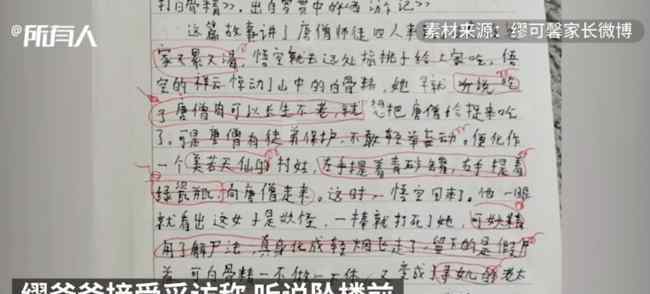 @所有人
素材来源：缪可馨家长微博
打白骨精》，出自罗贯中的《西游记》
这篇故事讲了唐僧师徒四人来
家又累又渴，悟空就去远处摘桃子给大家吃，悟
空的祥云惊动了山中的白骨精，她早就听说吃
了唐僧肉可以长生不老，就想把唐僧给捉来吃
了。可是唐僧有徒弟保护，不敢轻举妄动。便化作
一个美若天仙的村姑，左手提着青砂罐，右手提着
绿瓶向唐僧走来。这时，悟空回来了。他一眼
就看出这女子是妖怪，一棒就打死了她，可妖精
用了解尸法，真身化成轻烟飞走了，留下的是假尸
首。可白骨精一不做一不休，又变成了村姑的老大
缪爷爷接受采访称 听说坠楼前